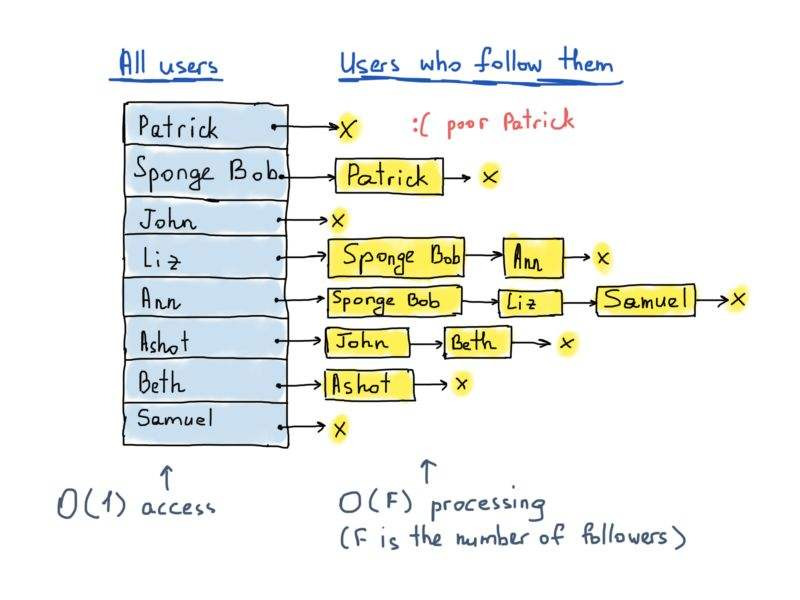 All users Users who follow them
Patrick x :( poor Patrick
Sponge Bob Patrick x
John x
Liz Sponge Bob Ann x
Ann Sponge Bob Liz Samuel x
Ashot John Beth x
Beth Ashot x
Samuel x
O(1) access O(F) processing
(F is the number of followers)